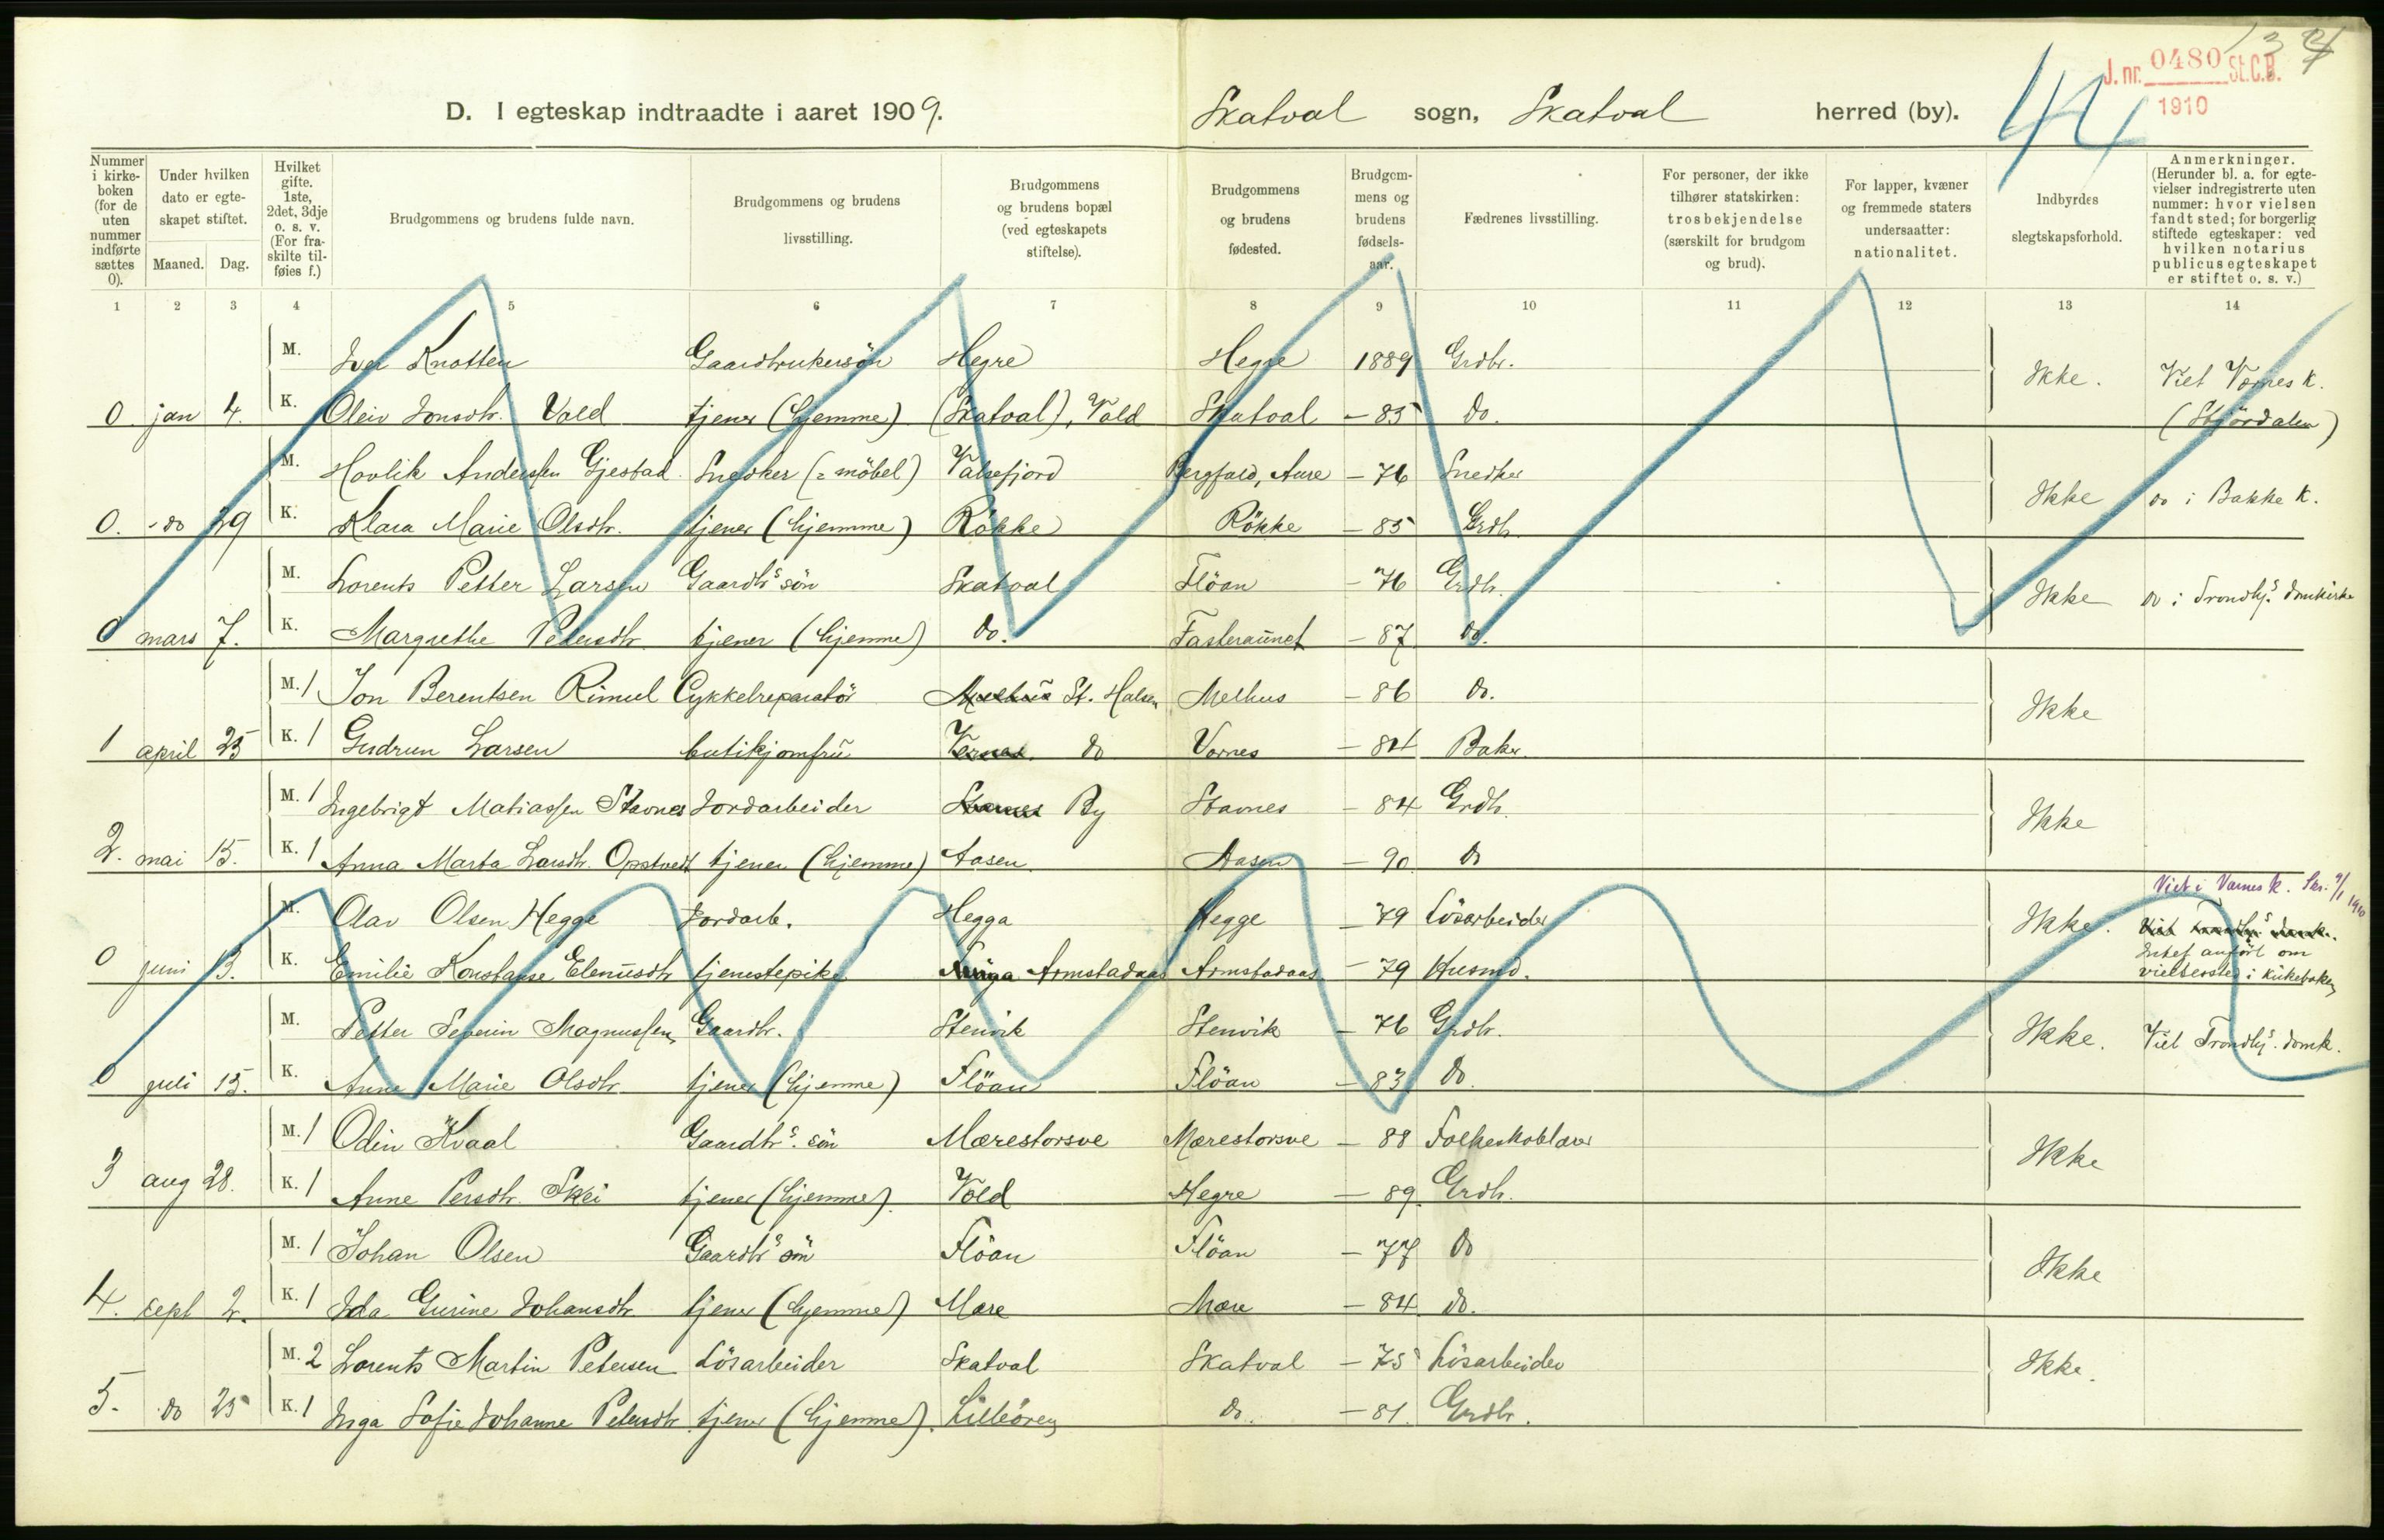 D. I egteskap indtraadte i aaret 1909. Skatval sogn, Skatval herred (by).
44
J. nr. 0480 St.C.B.
1910
Nummer i kirke-boken (for de uten nummer indførte sættes 0).
Under hvilken dato er egte-skapet stiftet.
Maaned. Dag.
Hvilket gifte. 1ste, 2det, 3dje o. s. v. (For fra-skilte til-føies f.)
Brudgommens og brudens fulde navn.
Brudgommens og brudens livsstilling.
Brudgommens og brudens bopæl (ved egteskapets stiftelse).
Brudgommens og brudens fødested.
Brudgom-mens og brudens fødsels-aar.
Fædrenes livsstilling.
For personer, der ikke tilhører statskirken: trosbekjendelse (særskilt for brudgom og brud).
For lapper, kvæner og fremmede staters undersaatter: nationalitet.
Indbyrdes slegtskapsforhold.
Anmerkninger. (Herunder bl. a. for egte-vielser indregistrerte uten nummer: hvor vielsen fandt sted; for borgerlig stiftede egteskaper: ved hvilken notarius publicus egteskapet er stiftet o. s. v.)
1 2 3 4 5 6 7 8 9 10 11 12 13 14
M. Iver Knotten Gaardbrukersön Hegre Hegre 1889 Grdbr. Ikke. Viet Værnes k.
0 jan 4. K. Oleiv Jonsdtr. Vold tjener (hjemme) (Skatval), Vold Skatval – 85 do. (Stjördalen)
M. Hovlik Anderssen Gjestad Snedker (= möbel) Valsefjord Aure – 76 Snedker
0. do 29 K. Klara Marie Olsdtr. tjener (hjemme) Røkke Røkke – 85 Grdb. Ikke do i Bakke k.
M. Lorents Petter Larsen Gaardbrs sön Skatval Flöan – 76 Grdb.
0 mars 7. K. Margrethe Petersdtr. tjener (hjemme) do. Fasteraunet – 87 do. Ikke do i Trondhjs domkirke
M. 1 Jon Berentsen Rimul Cykkelreparatör Melhus St. Halsen Melhus – 86 do.
1 april 25 K. 1 Gudrun Larsen butikjomfru do Værnes – 84 Baker. Ikke
M. 1 Ingebrigt Matiassen Stavnes Jordarbeider By Stavnes – 84 Grdb.
2. mai 15. K. 1 Anna Marta Larsdtr. Opstvedt tjener (hjemme) Aasen Aasen – 90 do Ikke
Viet i Værnes k.
M. Olav Olsen Hegge Jordarb. Hegga Hegge – 79 Lösarbeider Ikke.
0 juni 13. K. Emilie Konstanse Elenusdtr tjenestepike Armstadaas Armstadaas – 79 Husmd. Intet anfört om
vielsessted i kirkeboken
M. Petter Severin Magnussen Gaardbr. Stenvik Stenvik – 76 Grdbr. Ikke. Viet Trondhjs. domk.
0 juli 15. K. Anne Marie Olsdtr tjener (hjemme) Flöan Flöan – 83 do.
M. 1 Odin Kvaal Gaardbrs. sön Mærestorsve Mærestorsve – 88 Folkeskolelærer
3 aug 28. K. 1 Anne Persdtr. Skei tjener (hjemme) Vold Hegre – 89. Grdb. Ikke
M. 1 Johan Olsen Gaardbrs sön Flöan Flöan – 77 do
4. sept 2. K. 1 Ida Gurine Johansdtr tjener (hjemme) Mære Mære – 84. do. Ikke
M. 2 Lorents Martin Petersen Lösarbeider Skatval Skatval – 75 Lösarbeider Ikke.
5. do 25 K. 1 Inga Sofie Johanne Petersdtr. tjener (hjemme). Lilleören do. – 81. Grdbr.